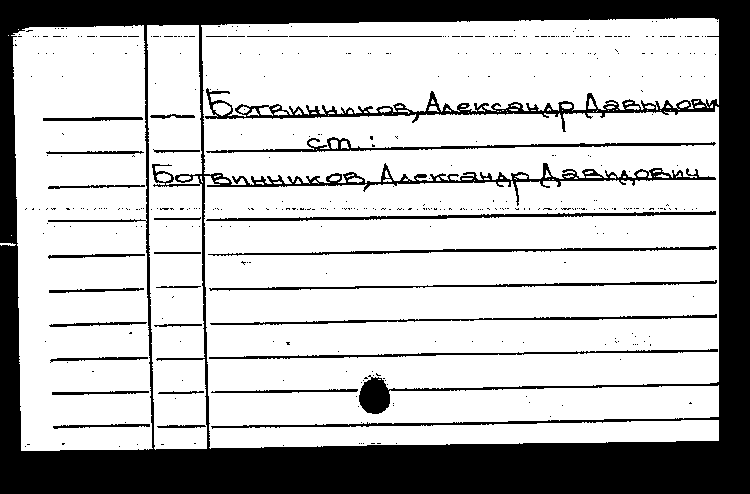 Ботвинников, Александр Давыдови
ст. :
Ботвинников, Александр Давидович